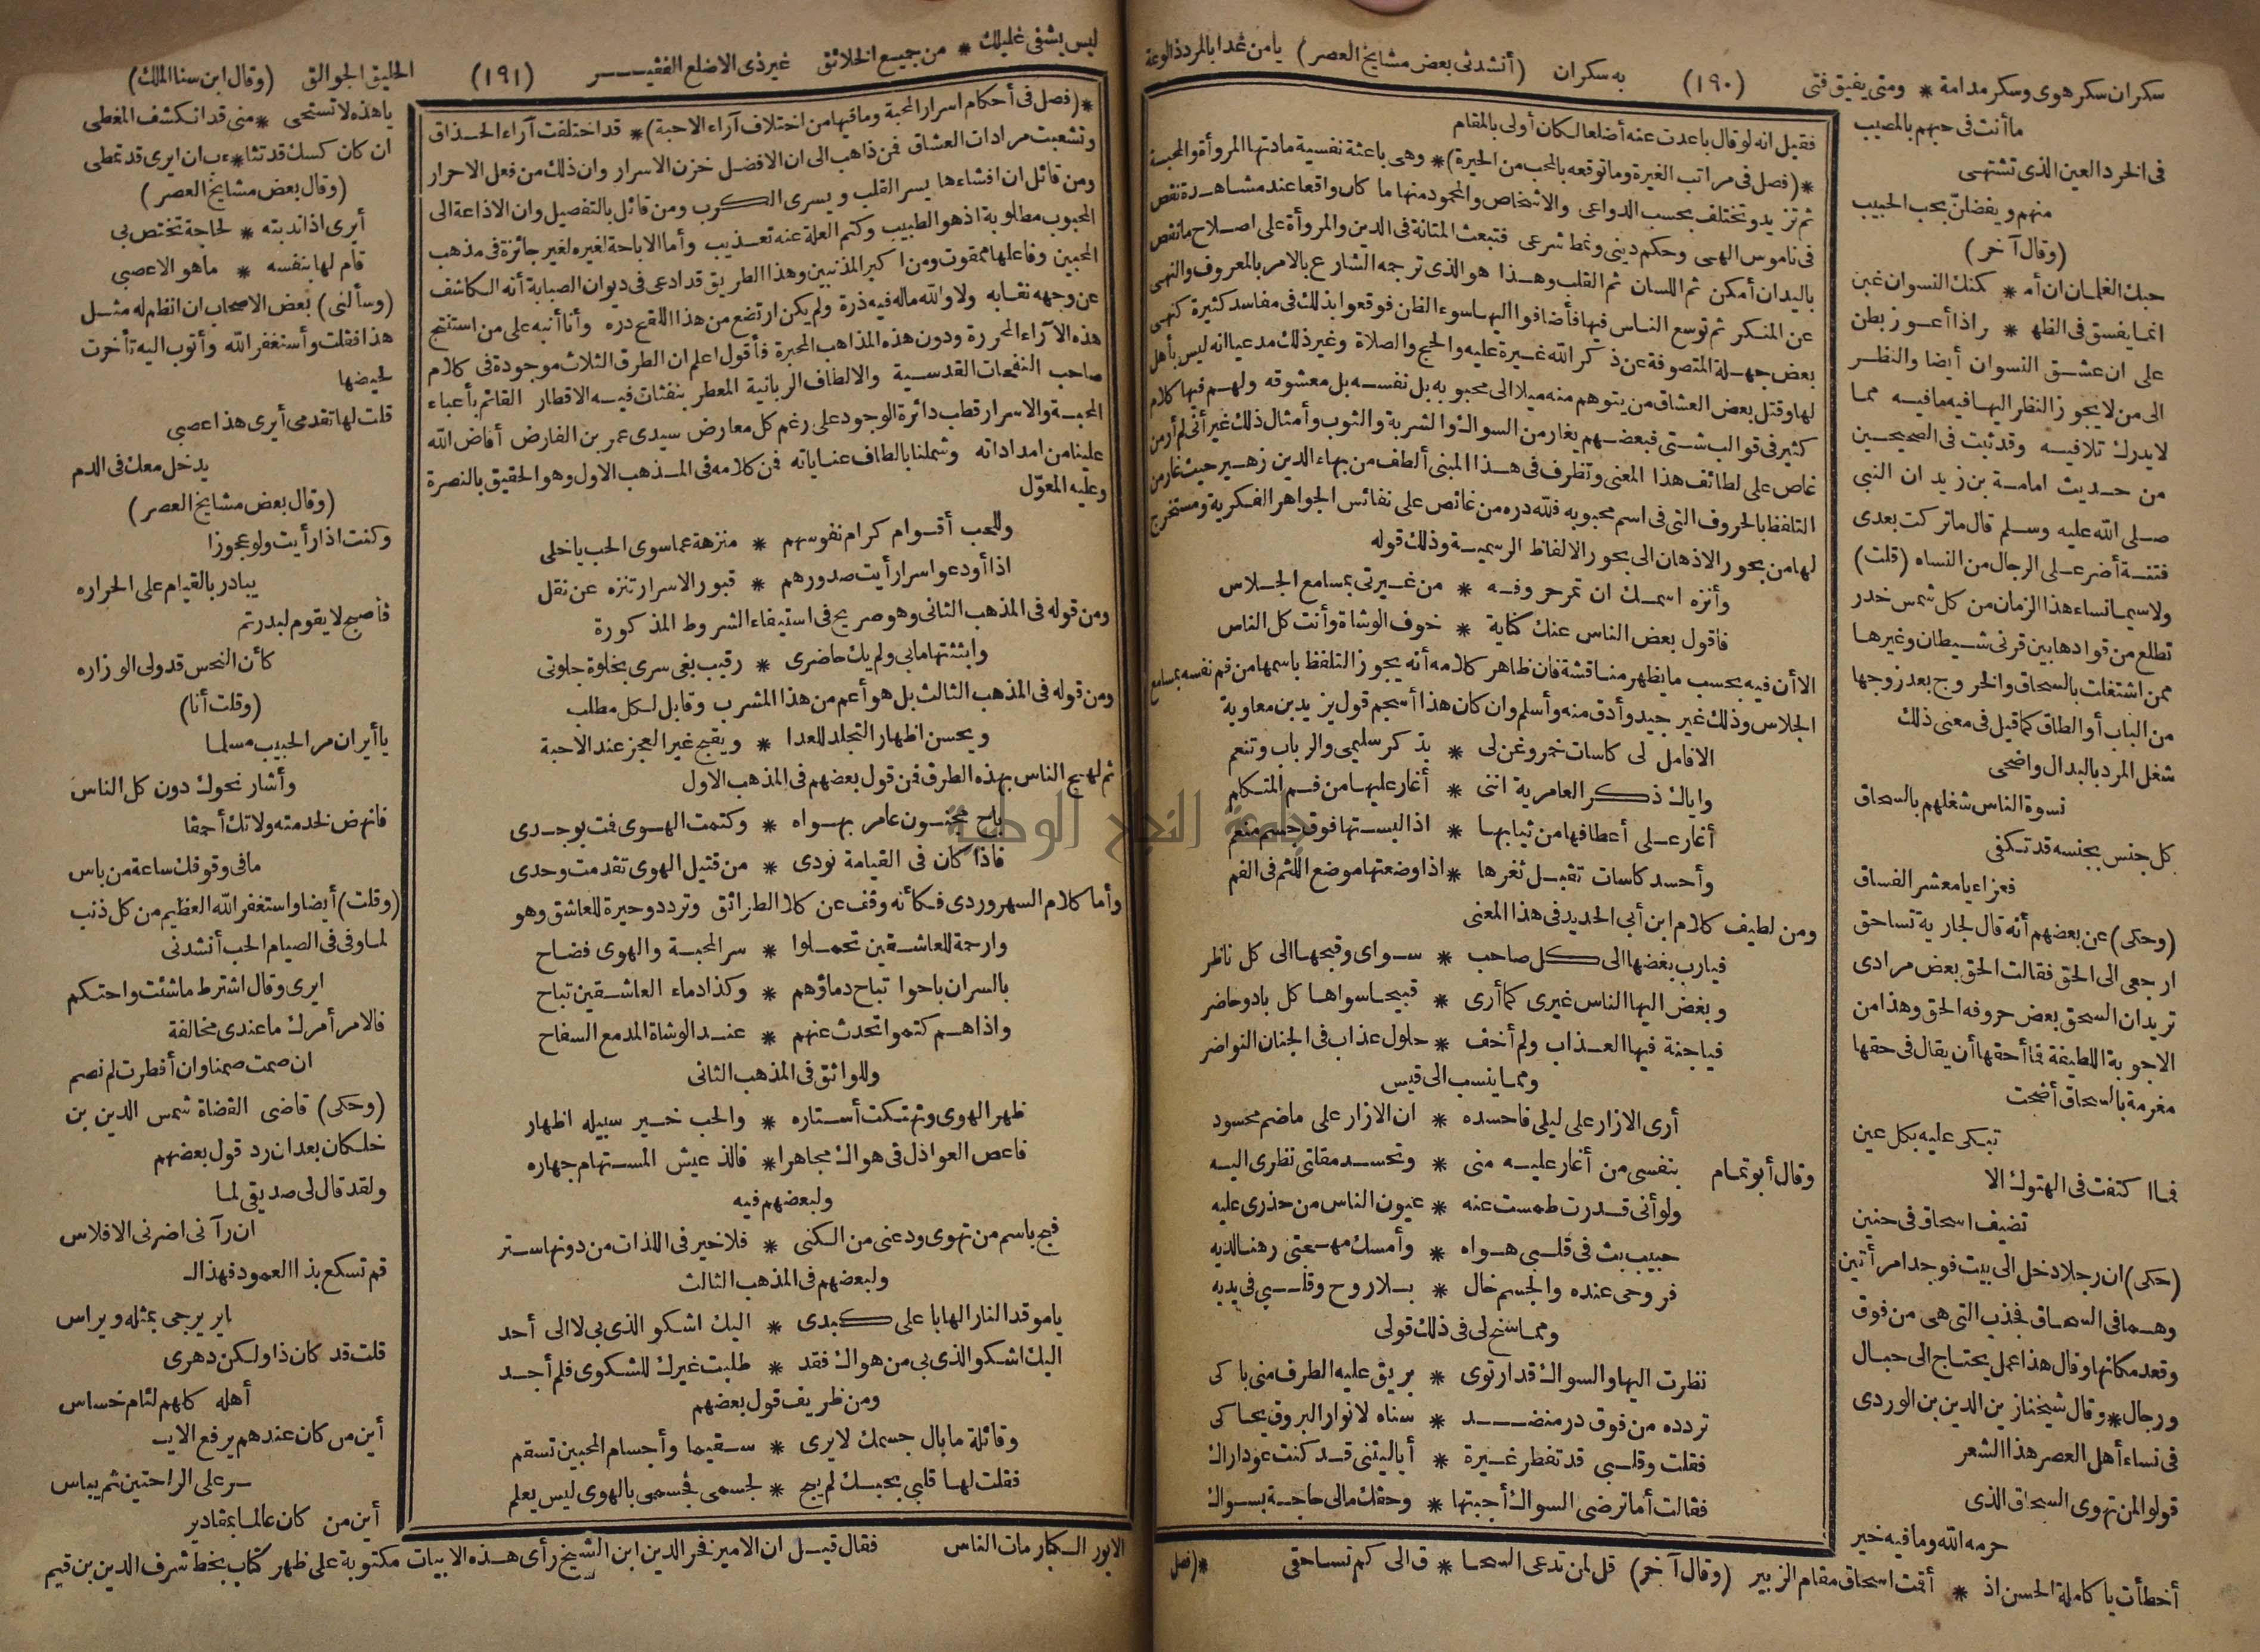 سكران سكر هوى وسكر مدامة * ومتى يفيق فتى (١٩٠) به سكران (أنشدنى بعض مشايخ العصر) يا من غدا بالمرد ذا لوعة
ما أنت فى حبهم بالمصيب
فى الخرد العين الذى تشتهى
منهم ويفضلن بحب الحبيب
(وقال آخر)
حبك الغلمان ان أم * كنك النسوان غبن
انما يفسق فى الظه * ر اذا أعوز بطن
على ان عشق النسوان أيضا والنظر
الى من لا يجوز النظر اليها فيه ما فيه مما
لا يدرك تلافيه وقد ثبت فى الصحيحين
من حديث امامة بن زيد ان النبى
صلى الله عليه وسلم قال ما تركت بعدى
فتنة أضر على الرجال من النساء (قلت)
ولا سيما نساء هذا الزمان من كل شمس خدر
تطلع من قوادها بين قرنى شيطان وغيرها
ممن اشتغلت بالسحاق والخروج بعد زوجها
من الباب أو الطاق كما قيل فى معنى ذلك
شغل المرد بالبدال واضحى
نسوة الناس شغلهم بالسحاق
كل جنس بجنسه قد تكفى
فعزاء يا معشر الفساق
(وحكى) عن بعضهم أنه قال لجارية تساحق
ارجعى الى الحق فقالت الحق بعض مرادى
تريد ان السحق بعض حروفه الحق وهذا من
الاجوبة اللطيفة فما أحقها أن يقال فى حقها
مغرمة بالسحاق أضحت
تبكى عليه بكل عين
فما ا كتفت فى الهتوك الا
تضيف اسحاق فى حنين
(حكى) ان رجلا دخل الى بيت فوجد امرأتين
وهما فى السحاق فجذب التى هى من فوق
وقعد مكانها وقال هذا عمل يحتاج الى حبال
ورجال * وقال شيخنا زين الدين بن الوردى
فى نساء أهل العصر هذا الشعر
قولوا لمن تهوى السحاق الذى
حرمه الله وما فيه خير
أخطأت يا كاملة الحسن اذ * أقمت اسحاق مقام الزبير (وقال آخر) قل لمن تدعى السحا * ق الى كم تساحقى
فقيل انه لو قال باعدت عنه أضلعا لكان أولى بالمقام
*(فصل فى مراتب الغيرة وما توقعه بالمحب من الحيرة)* وهى باعثة نفسية مادتها المروأة والمحبة
ثم تزيد وتختلف بحسب الدواعى والاشخاص والمحمود منها ما كان واقعا عند مشاهدة نقص
فى ناموس الهى وحكم دينى ونمط شرعى فتبعث المتانة فى الدين والمروأة على اصلاح ما نقص
باليد ان أمكن ثم اللسان ثم القلب وهذا هو الذى ترجمه الشارع بالامر بالمعروف والنهى
عن المنكر ثم توسع الناس فيها فأضافوا اليها سوء الظن فوقعوا بذلك فى مفاسد كثيرة كنهى
بعض جهلة المتصوفة عن ذكر الله غيرة عليه والحج والصلاة وغير ذلك مدعيا انه ليس بأهل
لها وقتل بعض العشاق من يتوهم منه ميلا الى محبوبه بل نفسه بل معشوقه ولهم فيها كلام
كثير فى قوالب شتى فبعضهم يغار من السواك والشربة والثوب وأمثال ذلك غير أنى لم أر من
غاص على لطائف هذا المعنى وتظرف فى هذا المبنى ألطف من بهاء الدين زهير حيث غار من
التلفظ بالحروف التى فى اسم محبوبه فلله دره من غائص على نفائس الجواهر الفكرية ومستخرج
لها من بحور الاذهان الى بحور الالفاظ الرسمية وذلك قوله
وأنزه اسمك ان تمر حروفه * من غيرتى بمسامع الجلاس
فاقول بعض الناس عنك كناية * خوف الوشاة وأنت كل الناس
الا أن فيه بحسب ما يظهر مناقشة فان ظاهر كلامه أنه يجوز التلفظ باسمها من فم نفسه بمسامع
الجلاس وذلك غير جيد وأدق منه وأسلم وان كان هذا أسجم قول يزيد بن معاوية
الا فامل لى كاسات خمر وغن لى * بذكر سليمى والرباب وتنعم
واياك ذكر العامرية اننى * أغار عليها من فم المتكلم
أغار على أعطافها من ثيابها * اذا لبستها فوق جسم منعم
وأحسد كاسات تقبل ثغرها * اذا وضعتها موضع اللثم فى الفم
ومن لطيف كلام ابن أبى الحديد فى هذا المعنى
فيارب بغضها الى كل صاحب * سواى وقبحها الى كل ناظر
وبغض اليها الناس غيرى كما أرى * قبيحا سواها كل باد وحاضر
فيا جنة فيها العذاب ولم أخف * حلول عذاب فى الجنان النواضر
ومما ينسب الى قيس
أرى الازار على ليلى فاحسده * ان الازار على ما ضم محسود
وقال أبو تمام بنفسى من أغار عليه منى * وتحسد مقلتى نظرى اليه
ولو أنى قدرت طمست عنه * عيون الناس من حذرى عليه
حبيب بث فى قلبى هواه * وأمسك مهجتى رهنا لديه
فروحى عنده والجسم خال * بلا روح وقلبى فى يديه
ومما سنح لى فى ذلك قولى
نظرت اليها والسواك قد ارتوى * بريق عليه الطرف منى باكى
تردده من فوق در منضد * سناه لانوار البروق يحاكى
فقلت وقلبى قد تفطر غيرة * أيا ليتنى قد كنت عود اراك
فقالت أما ترضى السواك أجبتها * وحقك مالى حاجة بسواك
*(فصل
ليس يشفى غليلك * من جميع الخلائق غير ذى الاضلع الفقير (١٩١) الحليق الجوالق (وقال ابن سنا الملك)
*(فصل فى أحكام اسرار المحبة وما فيها من اختلاف آراء الاحبة)* قد اختلفت آراء الحذاق
وتشعبت مرادات العشاق فمن ذاهب الى ان الافضل خزن الاسرار وان ذلك من فعل الاحرار
ومن قائل ان افشاءها يسر القلب ويسرى الكرب ومن قائل بالتفصيل وان الاذاعة الى
المحبوب مطلوبة اذ هو الطبيب وكتم العلة عنه تعذيب وأما الاباحة لغيره لغير جائزة فى مذهب
المحبين وفاعلها ممقوت ومن اكبر المذنبين وهذا الطريق قد ادعى فى ديوان الصبابة أنه الكاشف
عن وجهه نقابه ولا والله ماله فيه ذرة ولم يكن ارتضع من هذا اللقع دره وأنا أنبه على من استنتج
هذه الآراء المحررة ودون هذه المذاهب المحبرة فأقول اعلم ان الطرق الثلاث موجودة فى كلام
صاحب النفحات القدسية والالطاف الربانية المعطر بنفثات فيه الاقطار القائم بأعباء
المحبة والاسرار قطب دائرة الوجود على رغم كل معارض سيدى عمر بن الفارض أفاض الله
علينا من امداداته وشملنا بالطاف عناياته فمن كلامه فى المذهب الاول وهو الحقيق بالنصرة
وعليه المعوّل
وللحب أقوام كرام نفوسهم * منزهة عما سوى الحب يا خلى
اذا أودعوا سرا رأيت صدورهم * قبور الاسرار تنزه عن نقل
ومن قوله فى المذهب الثانى وهو صريح فى استيفاء الشروط المذكورة
وابثثتها مابى ولم يك حاضرى * رقيب بغى سرى بخلوة جلوتى
ومن قوله فى المذهب الثالث بل هو أعم من هذا المشرب وقابل لكل مطلب
ويحسن اظهار التجلد للعدا * ويقبح غير العجز عند الاحبة
ثم لهج الناس بهذه الطرق فمن قول بعضهم فى المذهب الاول
باح مجنون عامر بهواه * وكتمت الهوى فمت بوجدى
فاذا كان فى القيامة نودى * من قتيل الهوى تقدمت وحدى
وأما كلام السهروردى فكأنه وقف عن كلا الطرائق وتردد وحيرة للعاشق وهو
وارحمة للعاشقين تحملوا * سر المحبة والهوى فضاح
بالسر ان باحوا تباح دماؤهم * وكذا دماء العاشقين تباح
واذا هم كتموا تحدث عنهم * عند الوشاة المدمع السفاح
وللواثق فى المذهب الثانى
ظهر الهوى وتهتكت أستاره * والحب خير سبيله اظهار
فاعص العواذل فى هواك مجاهرا * فالذ عيش المستهام جهاره
ولبعضهم فيه
فبح باسم من تهوى ودعنى من الكنى * فلا خير فى اللذات من دونها ستر
ولبعضهم فى المذهب الثالث
يا موقد النار الهابا على كبدى * اليك اشكو الذى بى لا الى أحد
اليك اشكو الذى بى من هواك فقد * طلبت غيرك للشكوى فلم أجد
ومن ظريف قول بعضهم
وقائلة ما بال جسمك لا يرى * سقيما وأجسام المحبين تسقم
فقلت لها قلبى بحبك لم يبح * لجسمى فجسمى بالهوى ليس يعلم
يا هذه لا تستحى * منى قد انكشف المغطى
ان كان كسك قد تثا * ءب ان ايرى قد تمطى
(وقال بعض مشايخ العصر)
أيرى اذا ندبته * لحاجة تختص بى
قام لها بنفسه * ما هو الا عصبى
(وسألنى) بعض الاصحاب ان انظم له مثل
هذا فقلت وأستغفر الله وأتوب اليه تأخرت
لحيضها
قلت لها تقدمى أيرى هذا عصبى
يدخل معك فى الدم
(وقال بعض مشايخ العصر)
وكنت اذا رأيت ولو عجوزا
يبادر بالقيام على الحراره
فأصبح لا يقوم لبدرتم
كأن النحس قد ولى الوزاره
(وقلت أنا)
يا أير ان مر الحبيب مسلما
وأشار نحوك دون كل الناس
فانهض لخدمته ولا تك أحمقا
ما فى وقوفك ساعة من باس
(وقلت) أيضا واستغفر الله العظيم من كل ذنب
لما وفى فى الصيام الحب أنشدنى
ايرى وقال اشترط ما شئت واحتكم
فالامر أمرك ما عندى مخالفة
ان صمت صمنا وان أفطرت لم نصم
(وحكى) قاضى القضاة شمس الدين بن
خلكان بعد ان رد قول بعضهم
ولقد قال لى صديقى لما
ان رآنى اضرنى الافلاس
قم تسكع بذا العمود فهذا ال
اير يرجى بمثله ويراس
قلت قد كان ذا ولكن دهرى
أهله كلهم لئام خساس
أين من كان عندهم يرفع الاي
ر على الراحتين ثم يباس
أين من كان عالما بمقادير
الايور الكبار مات الناس فقال قيل ان الامير فخر الدين ابن الشيخ رأى هذه الابيات مكتوبة على ظهر كتاب بخط شرف الدين بن قيم
جامعة النجاح الوطنية